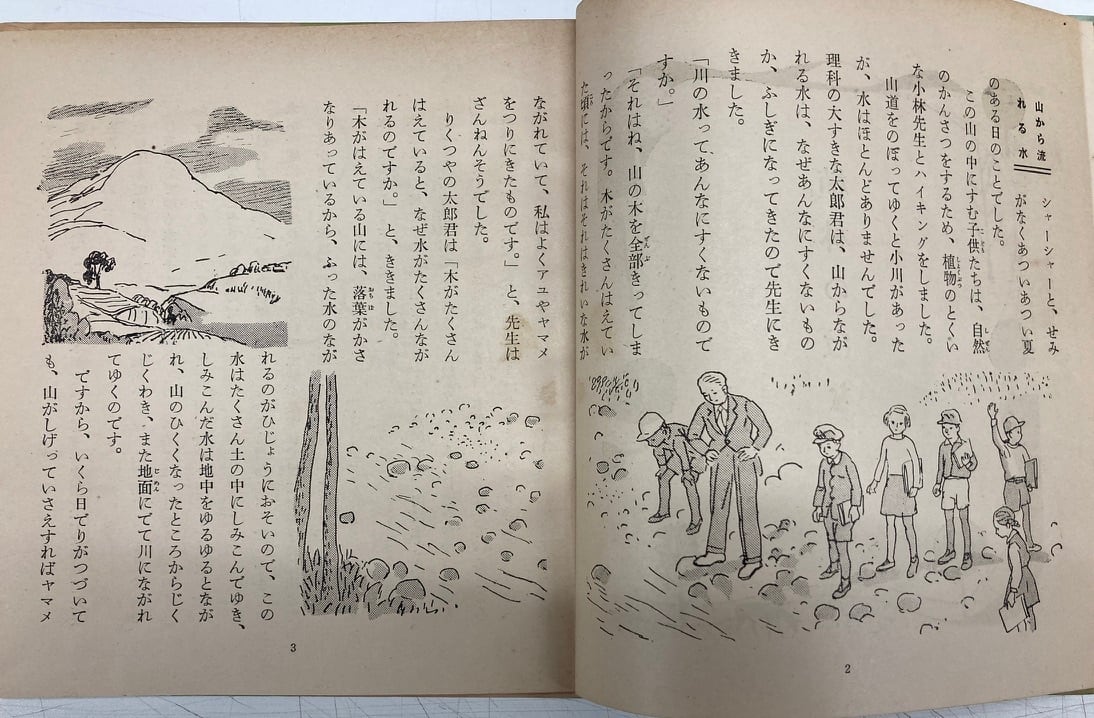 山から流
れる水
シャーシャーと、せみ
がなくあついあつい夏
のある日のことでした。
この山の中にすむ子供たちは、自然
のかんさつをするため、植物のとくい
な小林先生とハイキングをしました。
山道をのぼってゆくと小川があった
が、水はほとんどありませんでした。
理科の大すきな太郎君は、山からなが
れる水は、なぜあんなにすくないもの
か、ふしぎになってきたので先生にき
きました。
「川の水ってあんなにすくないもので
すか。」
「それはね、山の木を全部きってしま
ったからです。木がたくさんはえてい
た頃には、それはそれはきれいな水が
2
ながれていて、私はよくアユやヤマメ
をつりにきたものです。」と、先生は
ざんねんそうでした。
りくつやの太郎君は「木がたくさん
はえていると、なぜ水がたくさんなが
れるのですか。」と、ききました。
「木がはえている山には、落葉がかさ
なりあっているから、ふった水のなが
れるのがひじょうにおそいので、この
水はたくさん土の中にしみこんでゆき、
しみこんだ水は地中をゆるゆるとなが
れ、山のひくくなったところからじく
じくわき、また地面にでて川にながれ
てゆくのです。
ですから、いくら日でりがつづいて
も、山がしげっていさえすればヤマメ
3